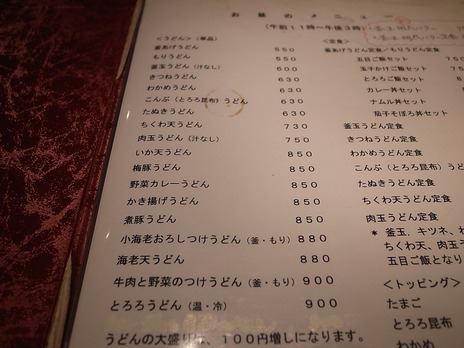 お昼のメニュー
(午前11時〜午後3時
<うどん>(単品)
釜あげうどん 550
もりうどん 550
釜玉うどん(汁なし) 600
きつねうどん 630
わかめうどん 630
こんぶ(とろろ昆布)うどん 630
たぬきうどん 630
ちくわ天うどん 730
肉玉うどん(汁なし) 750
いか天うどん 850
梅豚うどん 850
野菜カレーうどん 850
かき揚げうどん 850
煮豚うどん 850
小海老おろしつけうどん(釜・もり) 880
海老天うどん 880
牛肉と野菜のつけうどん(釜・もり) 900
とろろうどん(温・冷) 900
うどんの大盛りは、100円増しになります。
<定食>
釜あげうどん定食/もりうどん定食
五目ご飯セット 750
玉子かけご飯セット
とろろご飯セット
カレー丼セット
ナムル丼セット
茄子そぼろ丼セット
釜玉うどん定食
きつねうどん定食
わかめうどん定食
こんぶ(とろろ昆布)う
たぬきうどん定食
ちくわ天うどん定食
肉玉うどん定食
* 釜玉、キツネ、わ
ちくわ天、肉玉
五目ご飯となり
<トッピング>
たまご
とろろ昆布
わかめ